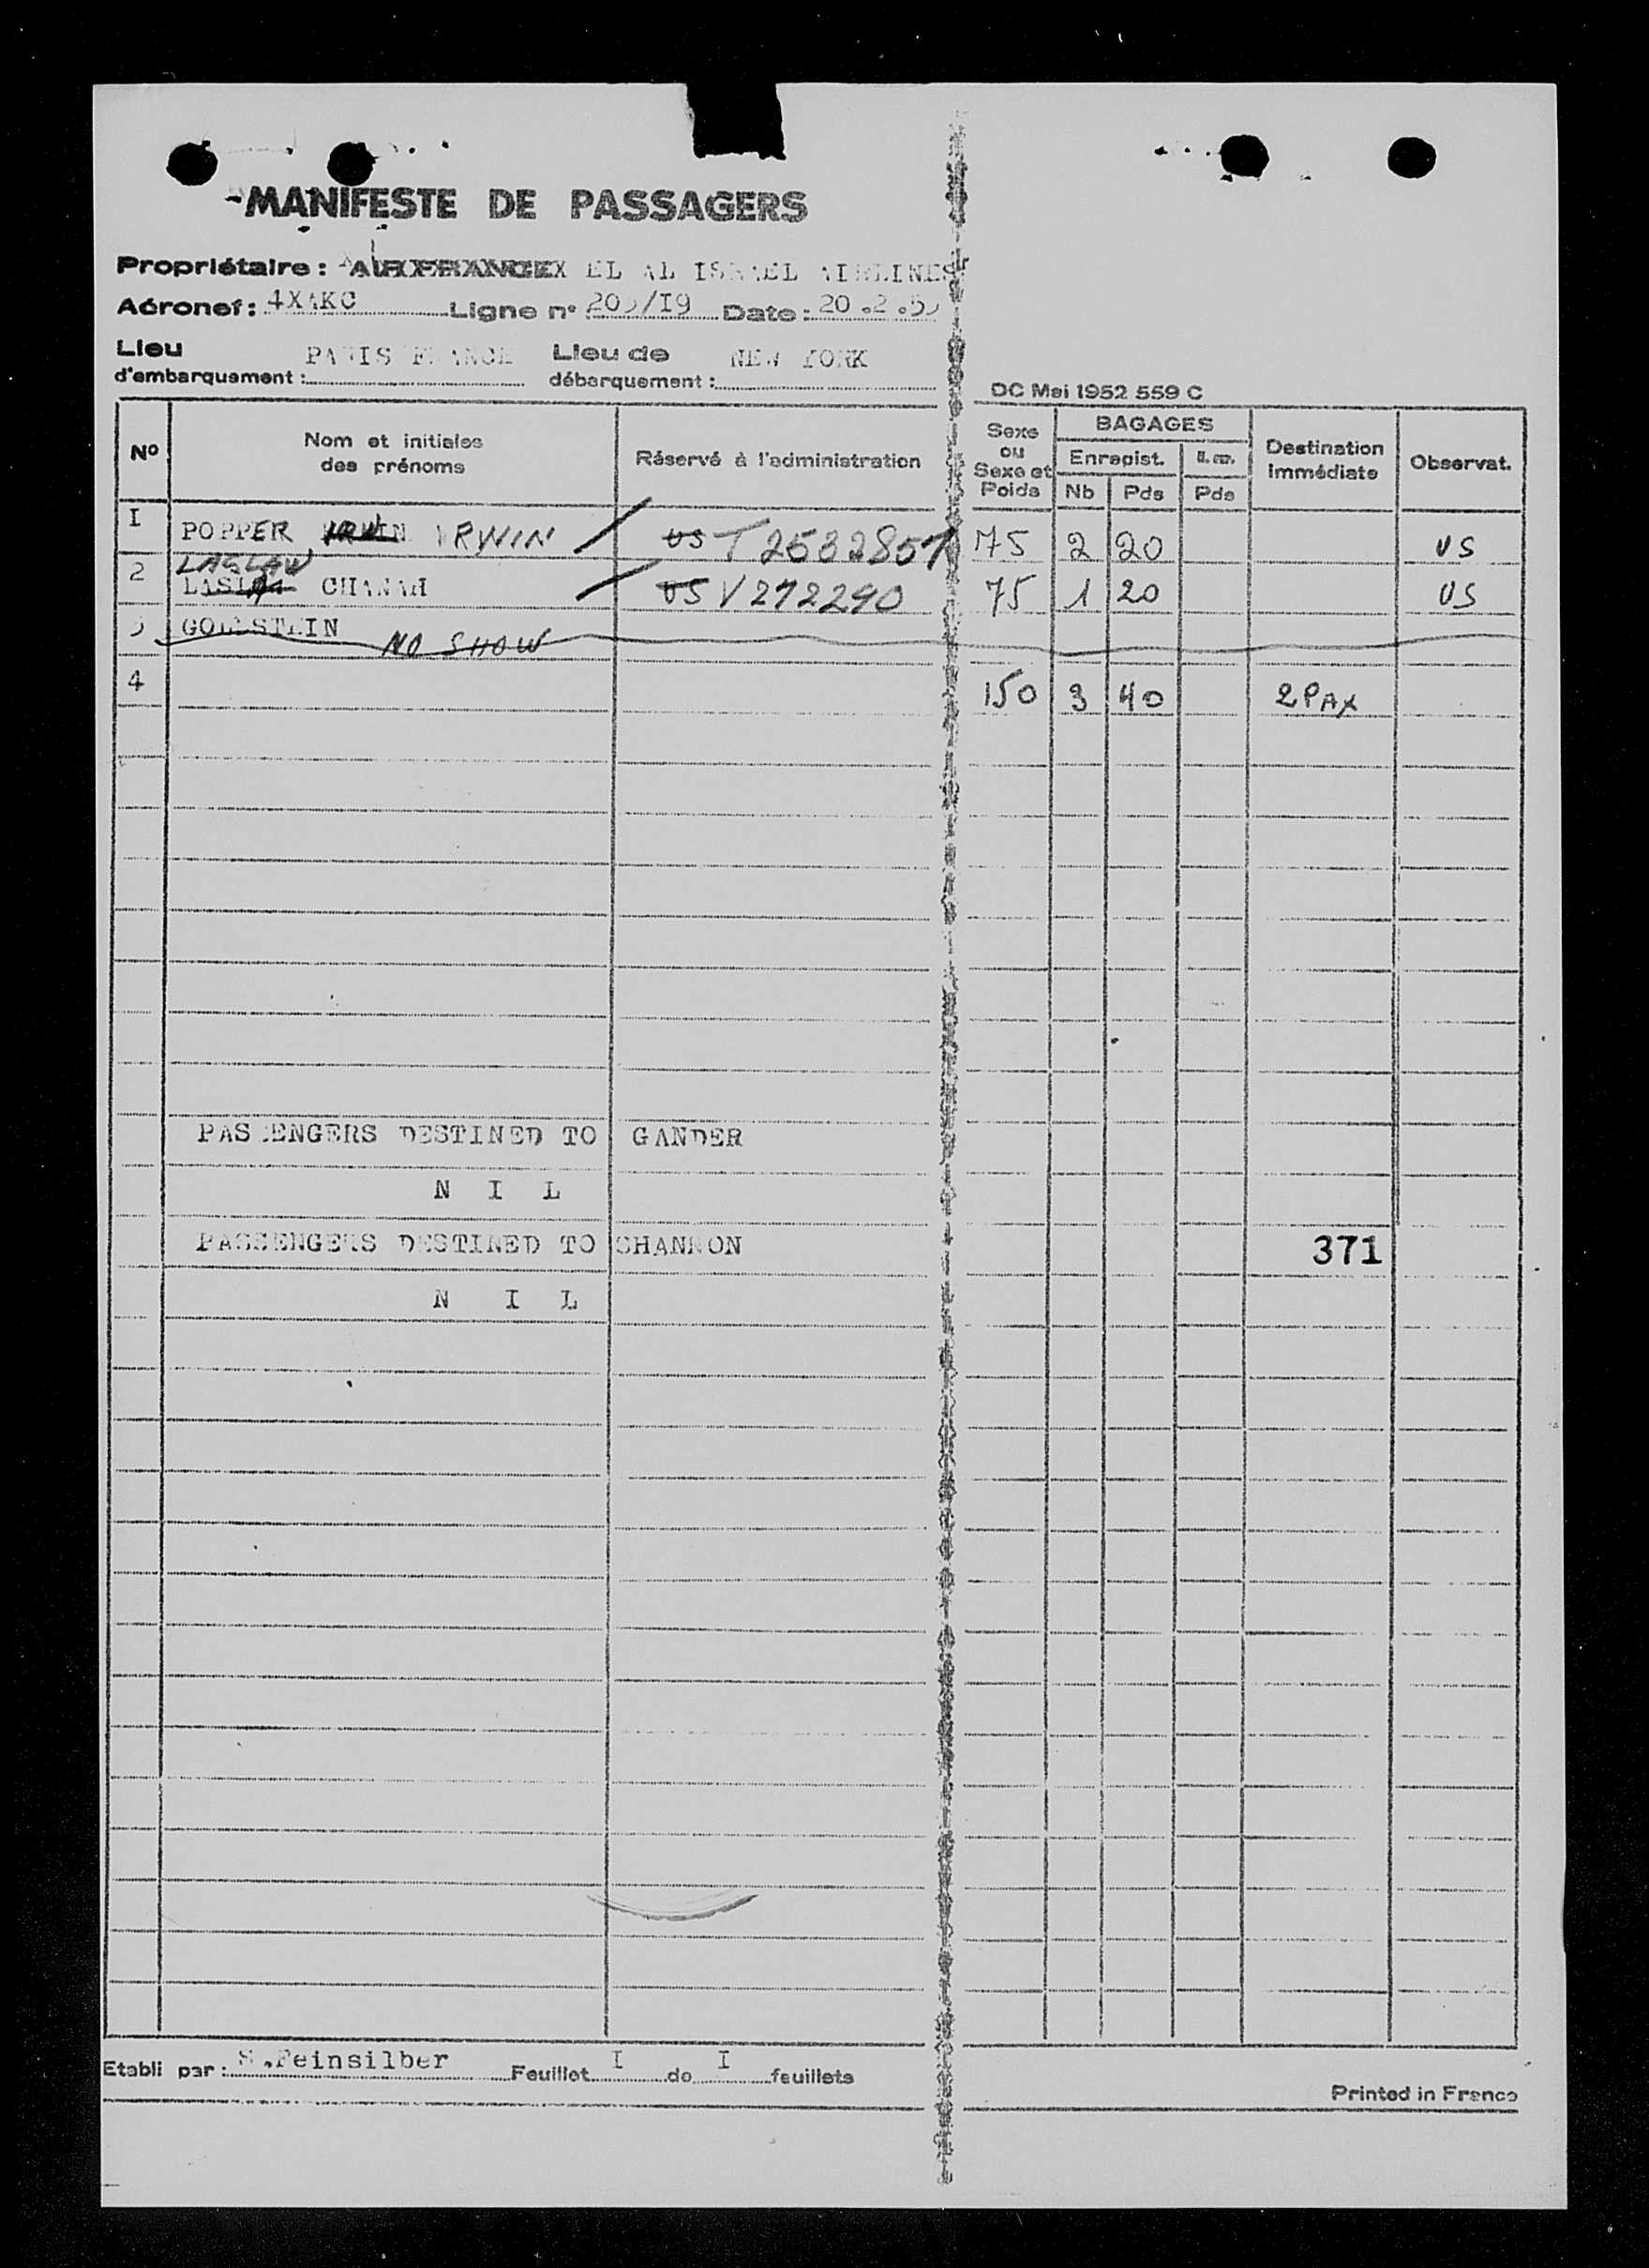 MANIFESTE DE PASSAGERS
Propriétaire: AIR FRANCE EL AL ISRAEL AIRLINES
Aéronef: 4XAKC Ligne n° 205/I9 Date: 20.2.55
Lieu d'embarquement: PARIS FRANCE Lieu de débarquement: NEW YORK
DC Mai 1952 559 C
N° Nom et initiales des prénoms Réservé à l'administration Sexe ou Sexe et Poids BAGAGES Enregist. Nb Pds Pds Destination immédiate Observat.
I POPPER IRWIN IRWIN US T2532857 75 2 20 US
LASLAW
2 CHANAH US V272290 75 1 20 US
3 GOLDSTEIN NO SHOW
4 150 3 40 2 PAX
PASSENGERS DESTINED TO GANDER
N I L
PASSENGERS DESTINED TO SHANNON
371
N I L
Etabli par: S.Feinsilber Feuillet I de I feuillets
Printed in France